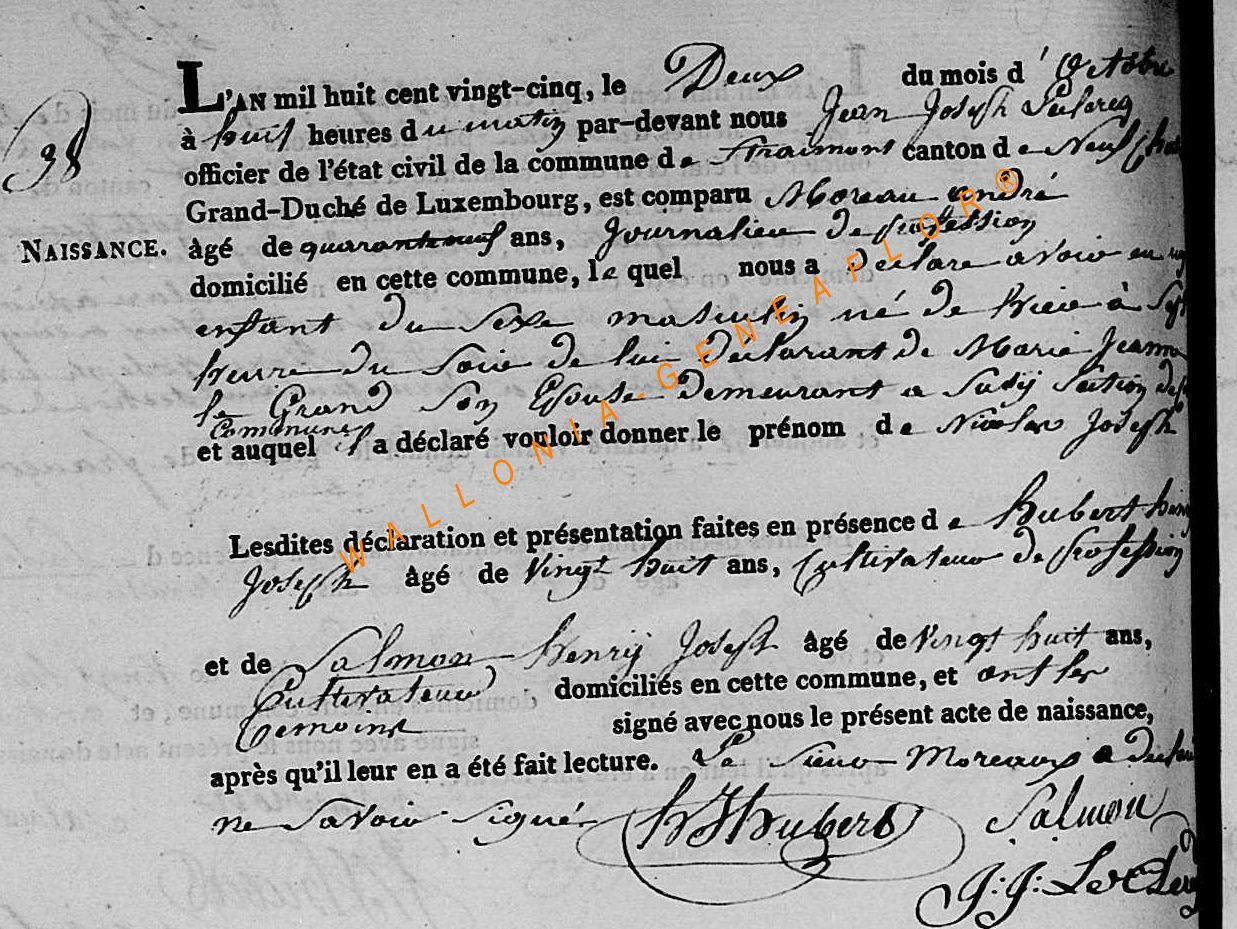 38
L'AN mil huit cent vingt-cinq, le Deux du mois d' Octobre
à huit heures du matin par-devant nous Jean Joseph Leclercq
officier de l'état civil de la commune de Straimont canton de Neufcha
Grand-Duché de Luxembourg, est comparu Moreau andré
NAISSANCE. âgé de quaranteneuf ans, Journalier De profession
domicilié en cette commune, le quel nous a Declare avoir eu un
enfant du Sexe masculin né de hier à Sept
heure du Soir de lui declarant de Marie Jeanne
le Grand Son Epouse Demeurant a Suxÿ Section de
Commune
et auquel il a déclaré vouloir donner le prénom de Nicolas Joseph
Lesdites déclaration et présentation faites en présence de Hubert
Joseph âgé de Vingt huit ans, Cultivateur de profession
et de Salmon Henrÿ Joseph âgé de Vingt huit ans,
Cultivateur domiciliés en cette commune, et ont les
temoins signé avec nous le présent acte de naissance,
après qu'il leur en a été fait lecture. Le Sieur Moreaux a
ne Savoir signer
hJHubert Salmon
J: J: LeClercq
WALLONIA.GENEAFLOR®